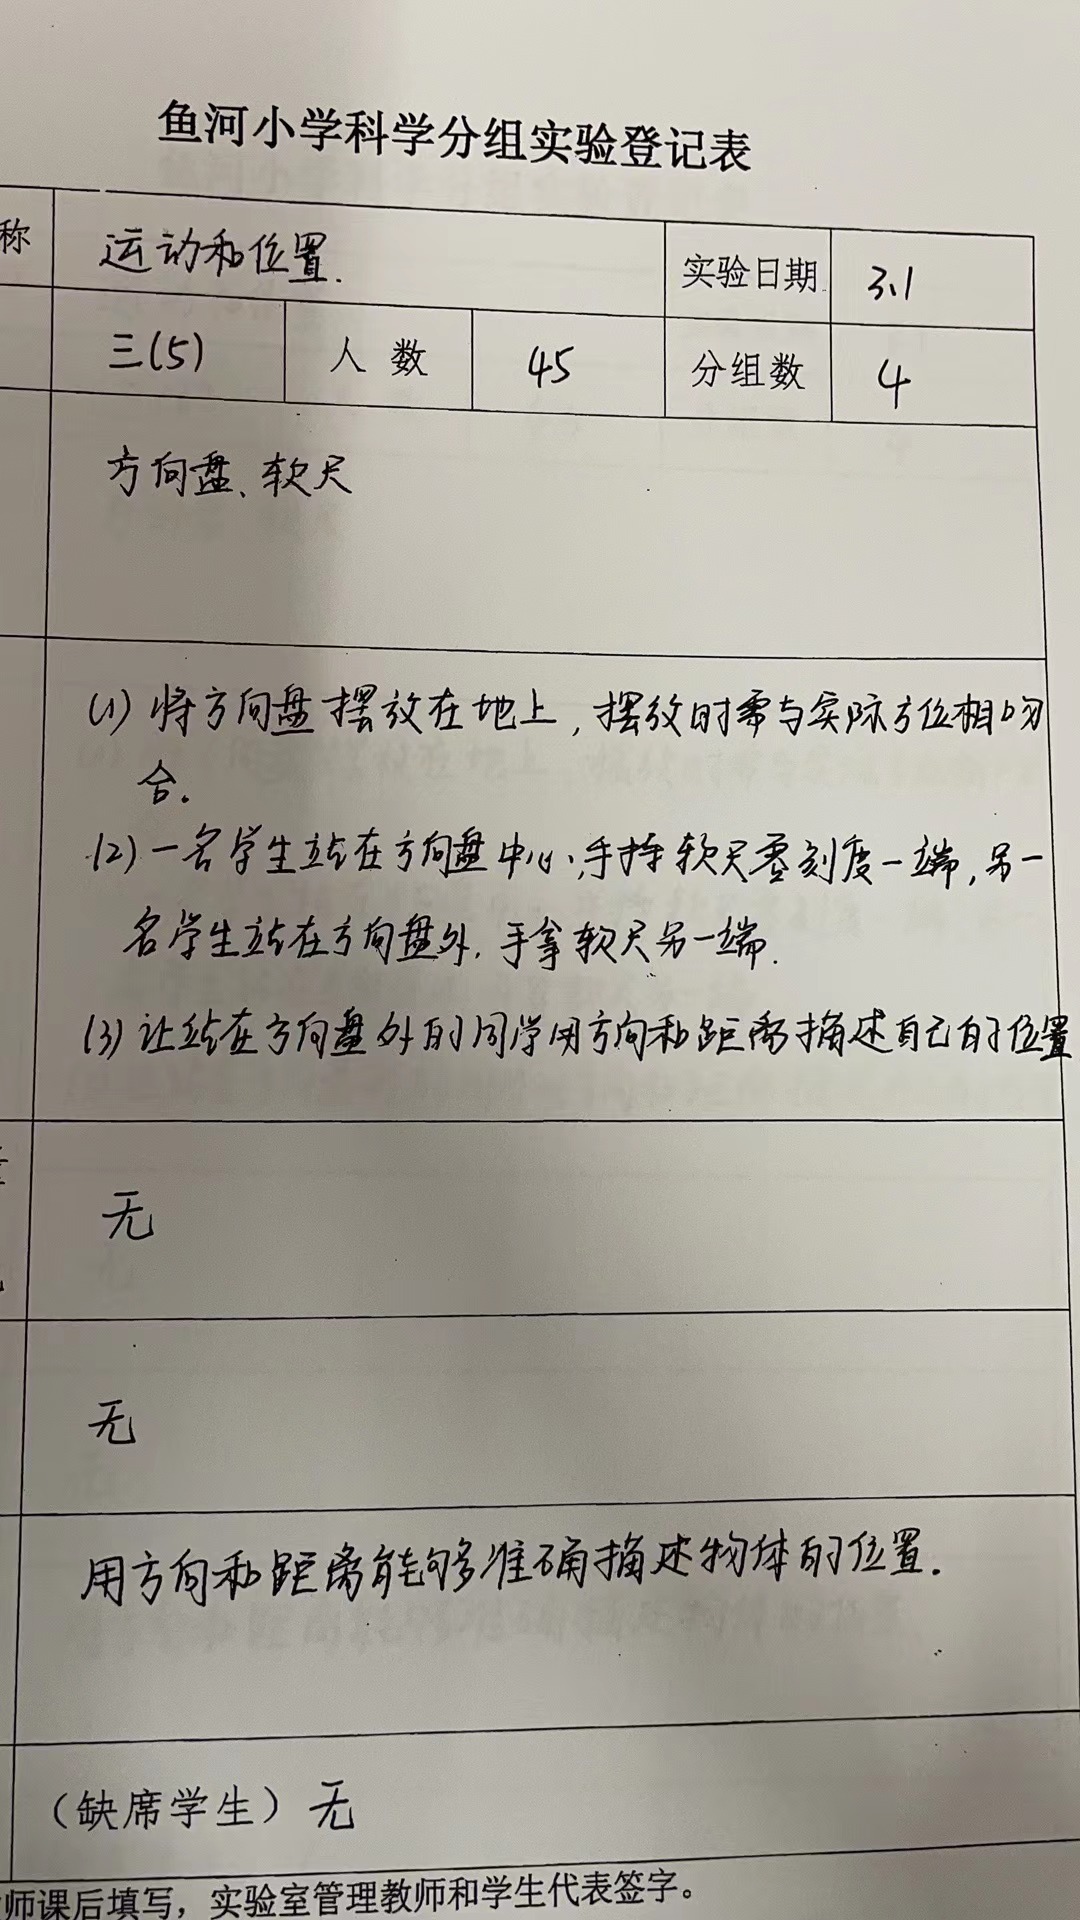 鱼河小学科学分组实验登记表
称 运动和位置. 实验日期 3.1
三(5) 人数 45 分组数 4
方向盘、软尺
(1) 将方向盘摆放在地上，摆放时需与实际方位相吻
合.
(2) 一名学生站在方向盘中心，手持软尺零刻度一端，另一
名学生站在方向盘外，手拿软尺另一端.
(3) 让站在方向盘外的同学用方向和距离描述自己的位置
无
无
用方向和距离能够准确描述物体的位置.
（缺席学生）无
师课后填写，实验室管理教师和学生代表签字。